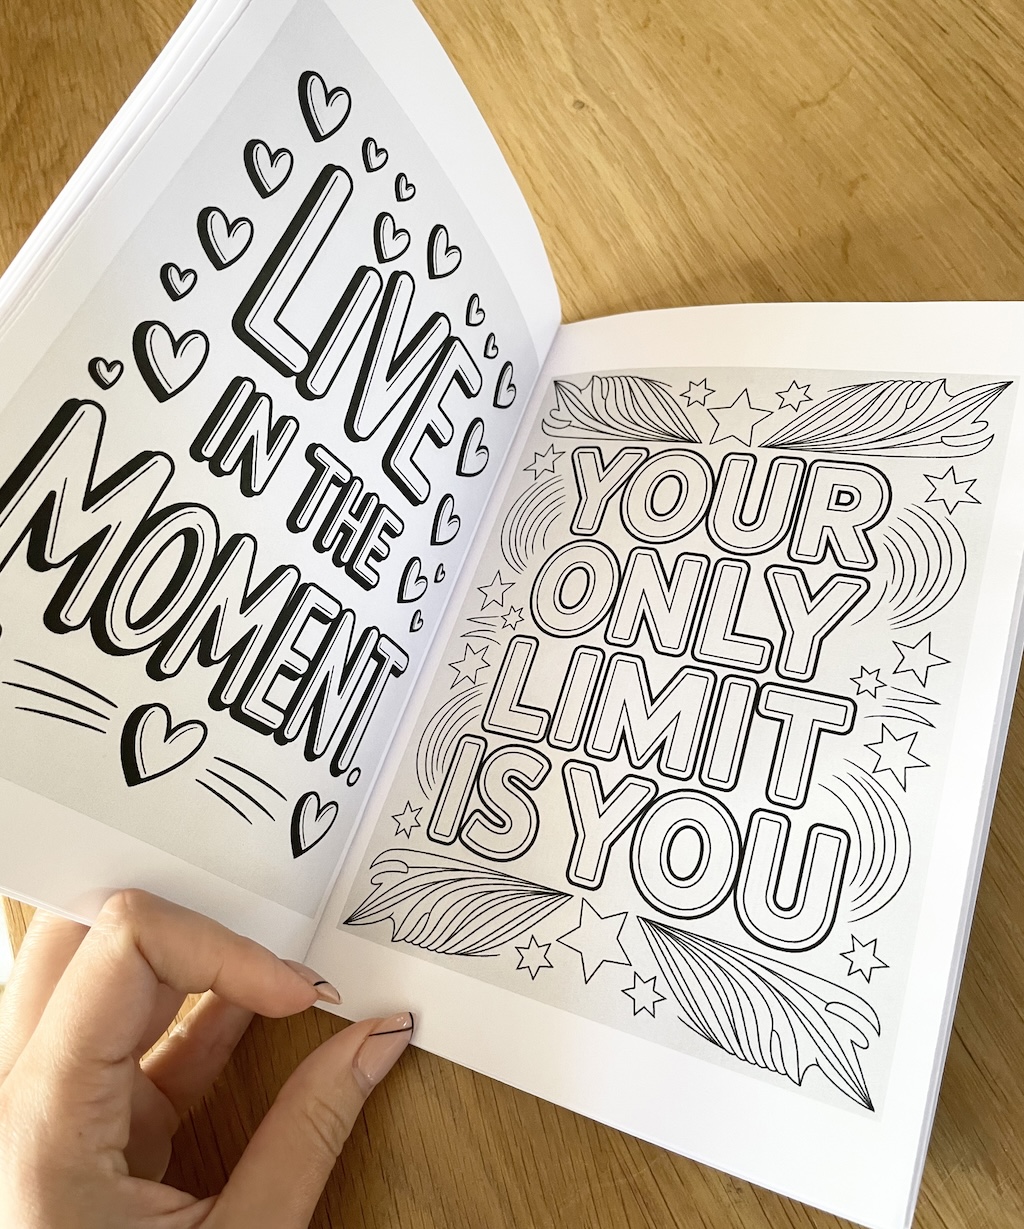 LIVE
IN THE
MOMENT.
YOUR
ONLY
LIMIT
IS YOU